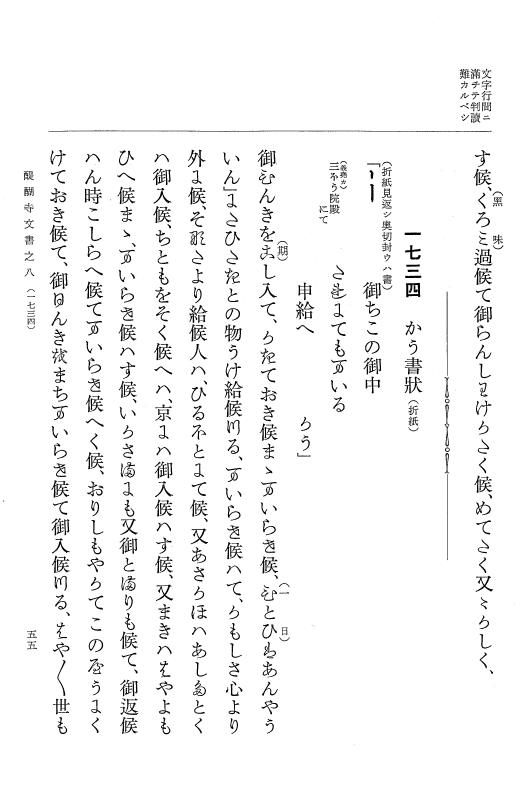 文字行間ニ
滿チテ判讀
難カルベシ
す候、くろミ過候て御らんしわけかたく候、めてたく又〻かしく、
(黒 味)
一七三四 かう書狀(折紙)
(折紙見返シ奥切封ウハ書)
「 御ちこの御中
(義堯カ)
三ほう院殿にて
さまにてもまいる
申給へ かう」
御むんきをこし入て、かたておき候まゝまいらせ候、むとひせあんやう
(期) (一日)
いん」にたひさたとの物うけ給候つる、まいらせ候ハて、かもしさ心より
外に候、そもしさより給候人ハ、ひるほとにて候、又あさかほハあしまとく
ハ御入候、ちともをそく候へハ、京にハ御入候ハす候、又まきハはやよも
ひへ候まゝ、まいらせ候ハす候、いかさまにも又御とまりも候て、御返候
ハん時こしらへ候てまいらせ候へく候、おりしもやかてこのやうによく
けておき候て、御日んきをまちまいらせ候て御入候つる、はや〳〵世も
醍醐寺文書之八(一七三四)
五五